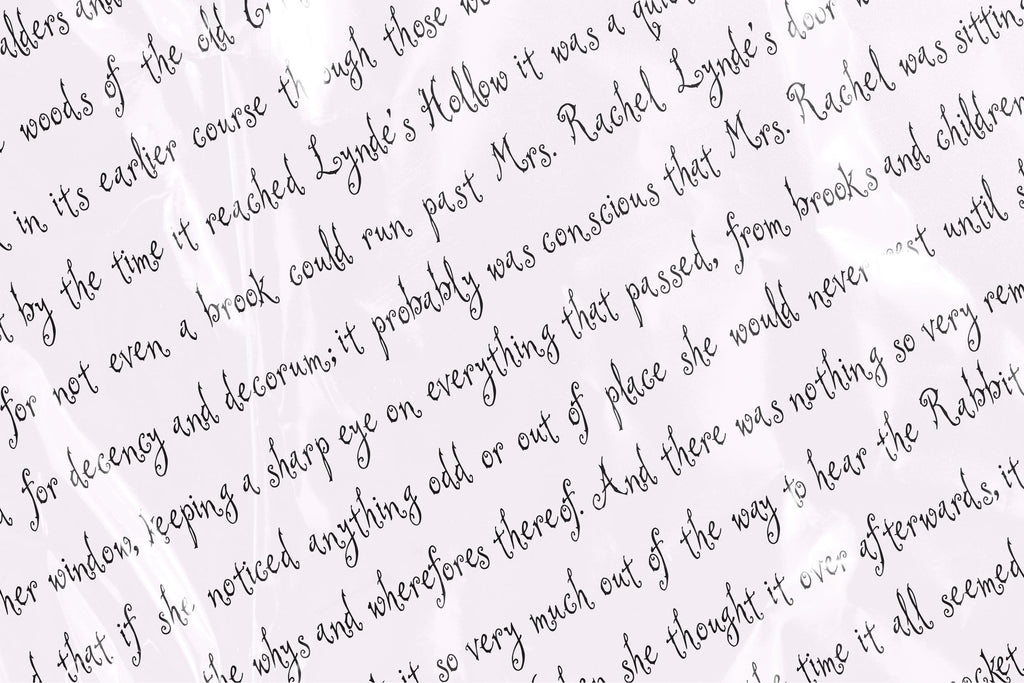 alders and
woods of the old
in its earlier course through those
by the time it reached Lynde's Hollow it was a quiet
for not even a brook could run past Mrs. Rachel Lynde's door
for decency and decorum; it probably was conscious that Mrs. Rachel was sitting
her window, keeping a sharp eye on everything that passed, from brooks and children
that if she noticed anything odd or out of place she would never rest until
the whys and wherefores thereof. And there was nothing so very rem
it so very much out of the way to hear the Rabbit
she thought it over afterwards, it
time it all seemed